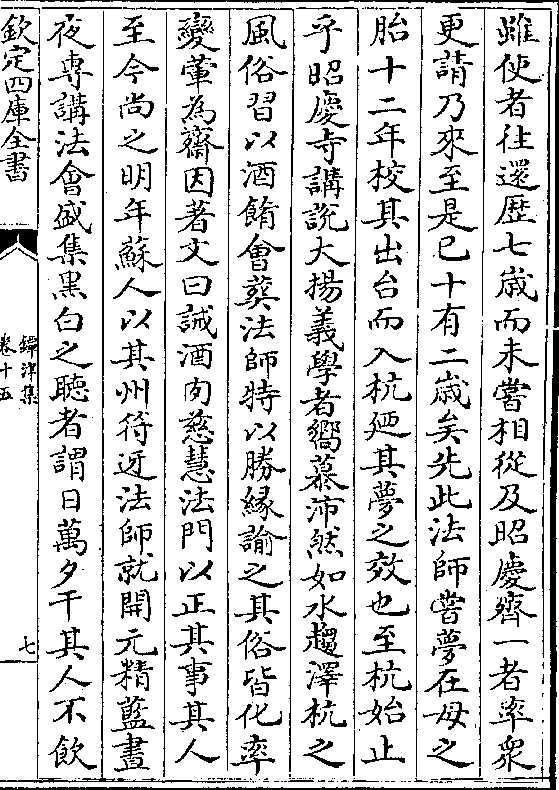 雖使者往還歴七歳而未嘗相從及昭慶齊一者率衆
更請乃來至是已十有二歳矣先此法師嘗夢在母之
胎十二年校其出台而入杭廼其夢之效也至杭始止
乎昭慶寺講説大揚義學者嚮慕沛然如水趨澤杭之
風俗習以酒餚會葬法師特以勝縁諭之其俗皆化率
變葷為齋因著文曰誡酒肉慈慧法門以正其事其人
至今尚之明年蘇人以其州符迓法師就開元精藍晝
夜專講法會盛集黒白之聽者謂日萬夕千其人不飲
欽定四庫全書
鐔津集
卷十五
七